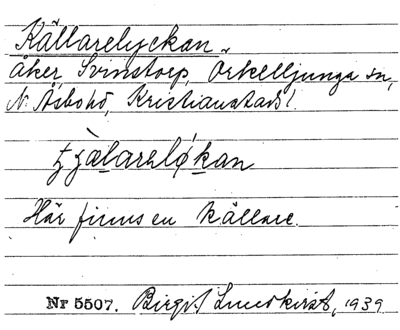 Källarelyckan.
åker, Svinstorp, Örkelljunga sn,
N. Åsbohd, Kristianstads l.
tjälarelǿkan
Här finns en källare.
Nr 5507. Birgit Lundkvist, 1939